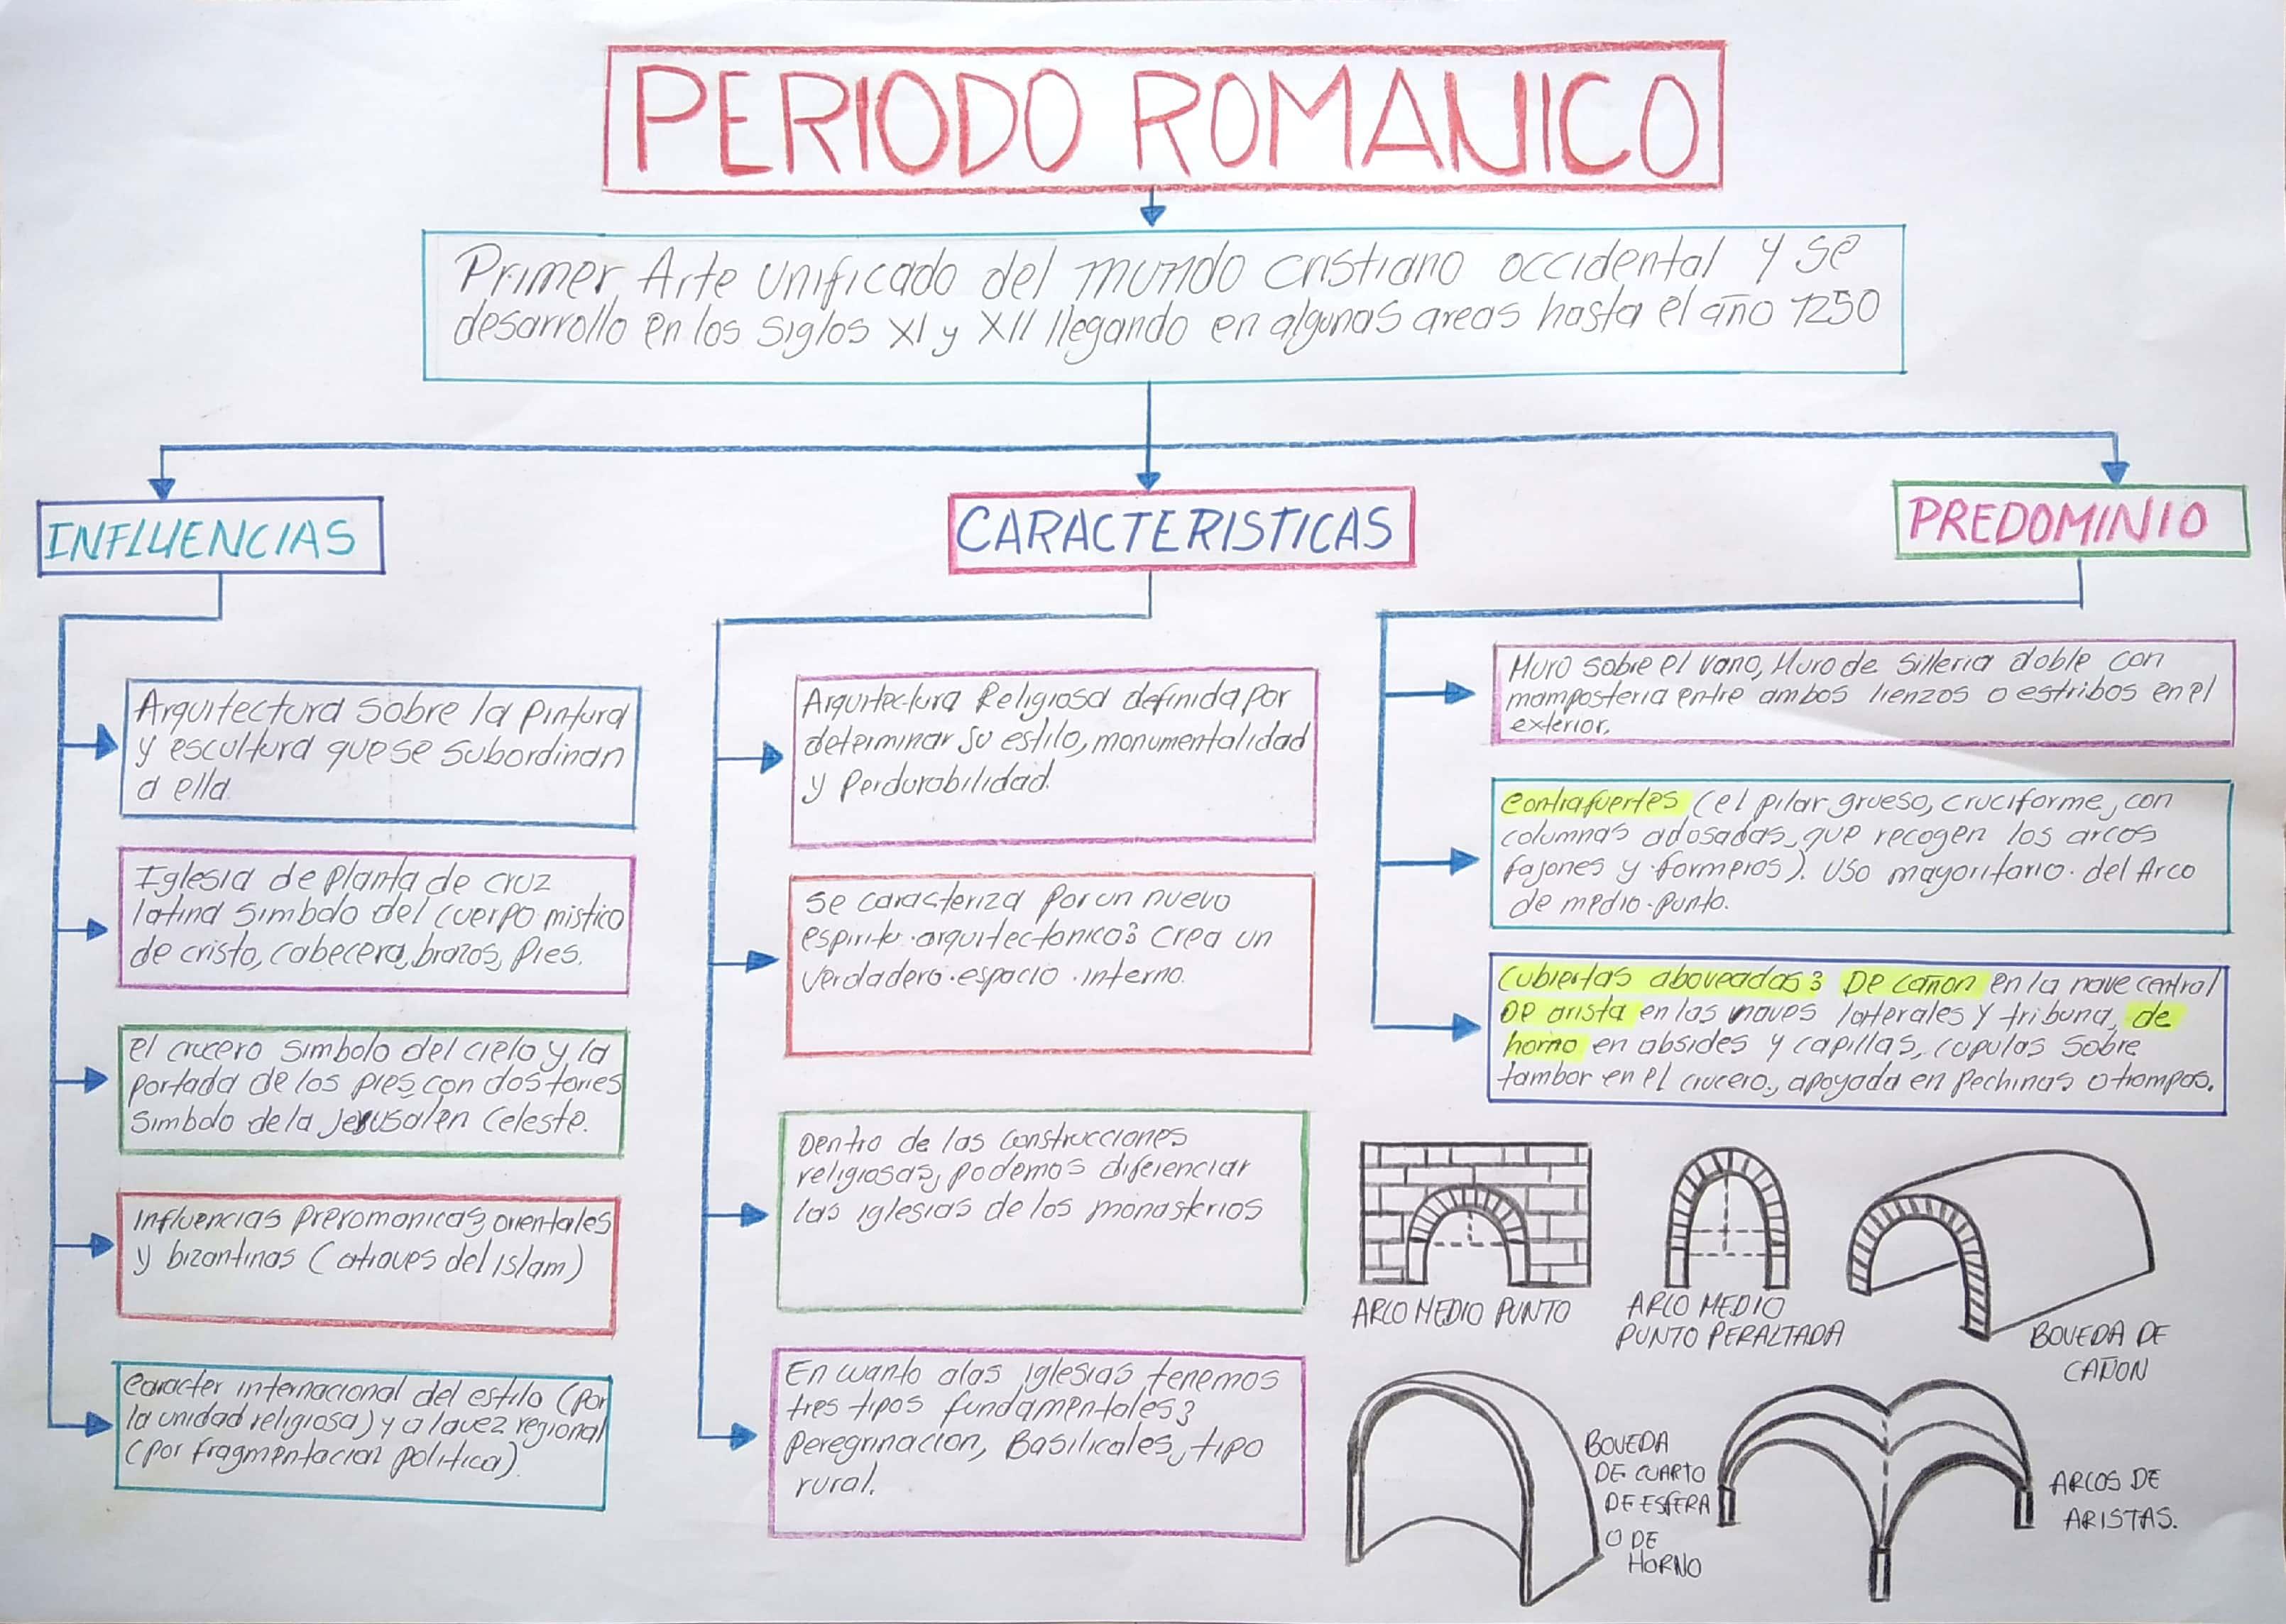 PERIODO ROMANICO
Primer Arte unificado del mundo cristiano occidental y se
desarrollo en los siglos XI y XII llegando en algunas areas hasta el año 1250
INFLUENCIAS
Arquitectura sobre la pintura
y escultura que se subordinan
a ella.
Iglesia de planta de cruz
latina simbolo del cuerpo mistico
de cristo, cabecera, brazos, Pies.
el crucero simbolo del cielo y la
portada de los pies con dos torres
simbolo de la Jerusalen Celeste.
Influencias preromanicas, orientales
y bizantinas (atraves del Islam)
caracter internacional del estilo (por
la unidad religiosa) y a lavez regional
(por fragmentacion politica).
CARACTERISTICAS
Arquitectura Religiosa definida por
determinar su estilo, monumentalidad
y perdurabilidad.
se caracteriza por un nuevo
espiritu arquitectonico: crea un
verdadero espacio interno.
Dentro de las construcciones
religiosas, podemos diferenciar
las iglesias de los monasterios
En cuanto alas iglesias tenemos
tres tipos fundamentales:
peregrinacion, Basilicales, tipo
rural.
PREDOMINIO
Muro sobre el vano, Muro de silleria doble con
mamposteria entre ambos lienzos o estribos en el
exterior.
contrafuertes (el pilar grueso, cruciforme, con
columnas adosadas, que recogen los arcos
fajones y formeros). Uso mayoritario del Arco
de medio punto.
cubiertas aboveadas: De cañon en la nave central
De arista en las naves laterales y tribuna, de
horno en absides y capillas, cupulas sobre
tambor en el crucero, apoyada en pechinas o trompas.
ARCO MEDIO PUNTO
ARCO MEDIO
PUNTO PERALTADA
BOVEDA DE
CAÑON
BOVEDA
DE CUARTO
DE ESFERA
O DE
HORNO
ARCOS DE
ARISTAS.